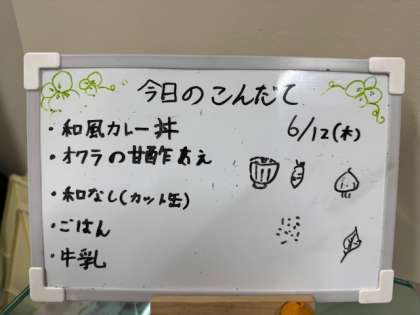 今日のこんだて
・和風カレー丼 6/12(木)
・オクラの甘酢あえ
・和なし(カット缶)
・ごはん
・牛乳